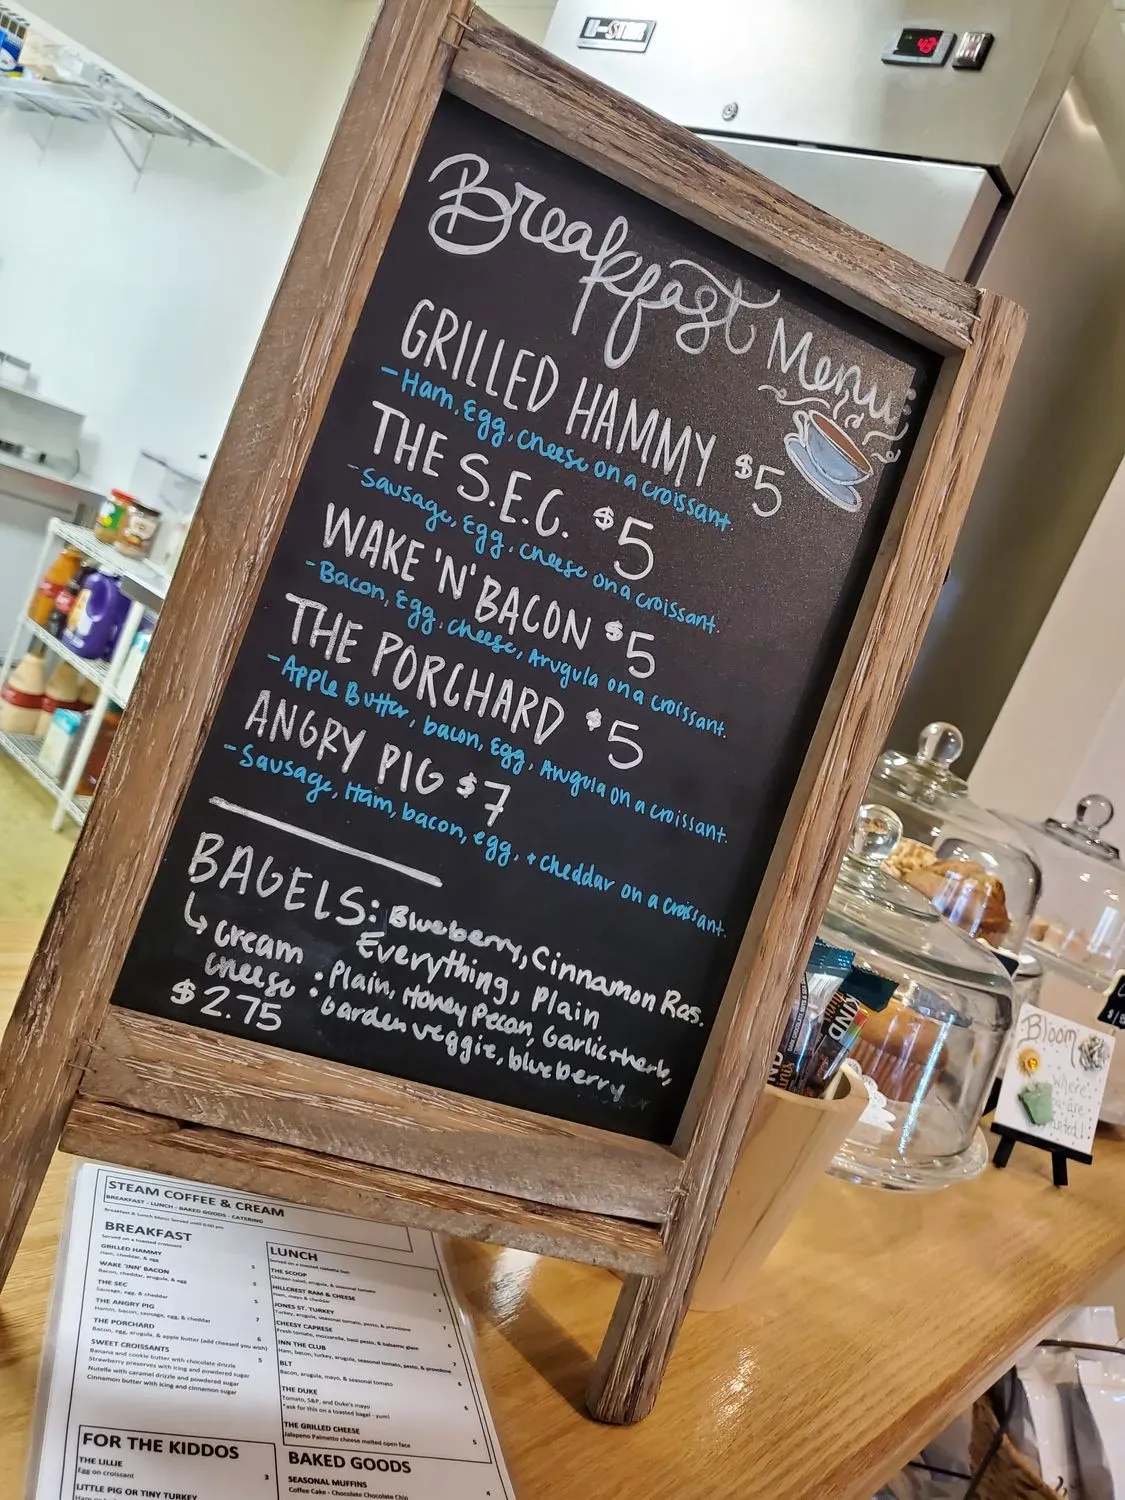 U-STAR
43
Breakfast Menu:
GRILLED HAMMY $5
-Ham, Egg, cheese on a croissant.
THE S.E.C. $5
-Sausage, Egg, cheese on a croissant.
WAKE 'N' BACON $5
-Bacon, Egg, cheese, Arugula on a croissant.
THE PORCHARD $5
-Apple Butter, bacon, egg, Arugula on a croissant.
ANGRY PIG $7
-Sausage, Ham, bacon, egg, + cheddar on a croissant.
BAGELS: Blueberry, Cinnamon Ras.
Everything, Plain
↳ cream cheese : Plain, Honey Pecan, Garlic+herb,
Garden veggie, blueberry
$2.75
KIND
Bloom
where
you are
planted!
STEAM COFFEE & CREAM
BREAKFAST - LUNCH - BAKED GOODS - CATERING
Breakfast & Lunch Menu Served until 6:00 pm
BREAKFAST
Served on a toasted croissant
GRILLED HAMMY 5
Ham, cheddar, & egg
WAKE 'INN' BACON 5
Bacon, cheddar, arugula, & egg
THE SEC 5
Sausage, egg, & cheddar
THE ANGRY PIG 7
Hamm, bacon, sausage, egg, & cheddar
THE PORCHARD 6
Bacon, egg, arugula, & apple butter (add cheesed you wish)
SWEET CROISSANTS 5
Banana and cookie butter with chocolate drizzle
Strawberry preserves with icing and powdered sugar
Nutella with caramel drizzle and powdered sugar
Cinnamon butter with icing and cinnamon sugar
LUNCH
THE SCOOP 6
Chicken salad, arugula, & seasonal tomato
HILLCREST HAM & CHEESE
Ham, mayo & cheddar
JONES ST. TURKEY 7
Turkey, arugula, seasonal tomato, pesto, & provolone
CHEESY CAPRESE 6
Fresh tomato, mozzarella, basil pesto, & balsamic glaze
INN THE CLUB 7
Ham, bacon, turkey, arugula, seasonal tomato, pesto, & provolone
BLT 6
Bacon, arugula, mayo, & seasonal tomato
THE DUKE 6
Tomato, S&P, and Duke's mayo
*ask for this on a toasted bagel - yum!
THE GRILLED CHEESE 5
Jalapeno Palmetto cheese melted open face
FOR THE KIDDOS
THE LILLIE 3
Egg on croissant
LITTLE PIG OR TINY TURKEY
BAKED GOODS
SEASONAL MUFFINS 4
Coffee Cake - Chocolate Chocolate Chip